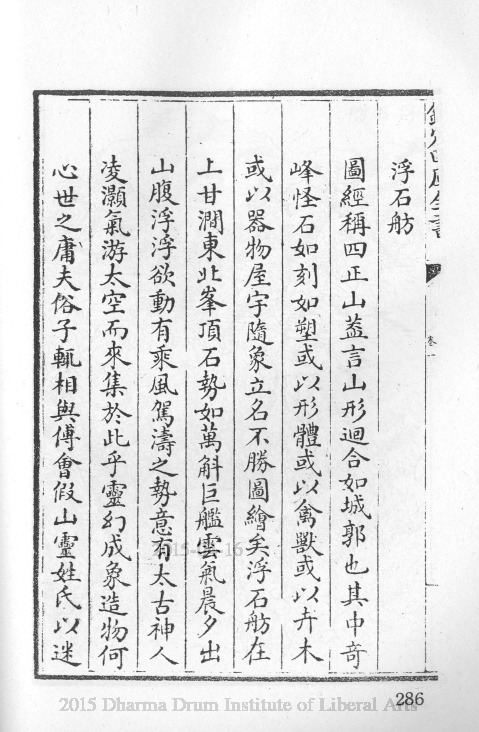 浮石舫
圖經稱四正山蓋言山形迴合如城郭也其中奇
峰怪石如刻如塑或以形體或以禽獸或以卉木
或以器物屋宇隨象立名不勝圖繪矣浮石舫在
上甘澗東北峯頂石勢如萬斛巨艦雲氣晨夕出
山腹浮浮欲動有乘風駕濤之勢意有太古神人
凌灝氣游太空而來集於此乎靈幻成象造物何
心世之庸夫俗子輒相與傅會假山靈姓氏以迷
286
2015 Dharma Drum Institute of Liberal Arts